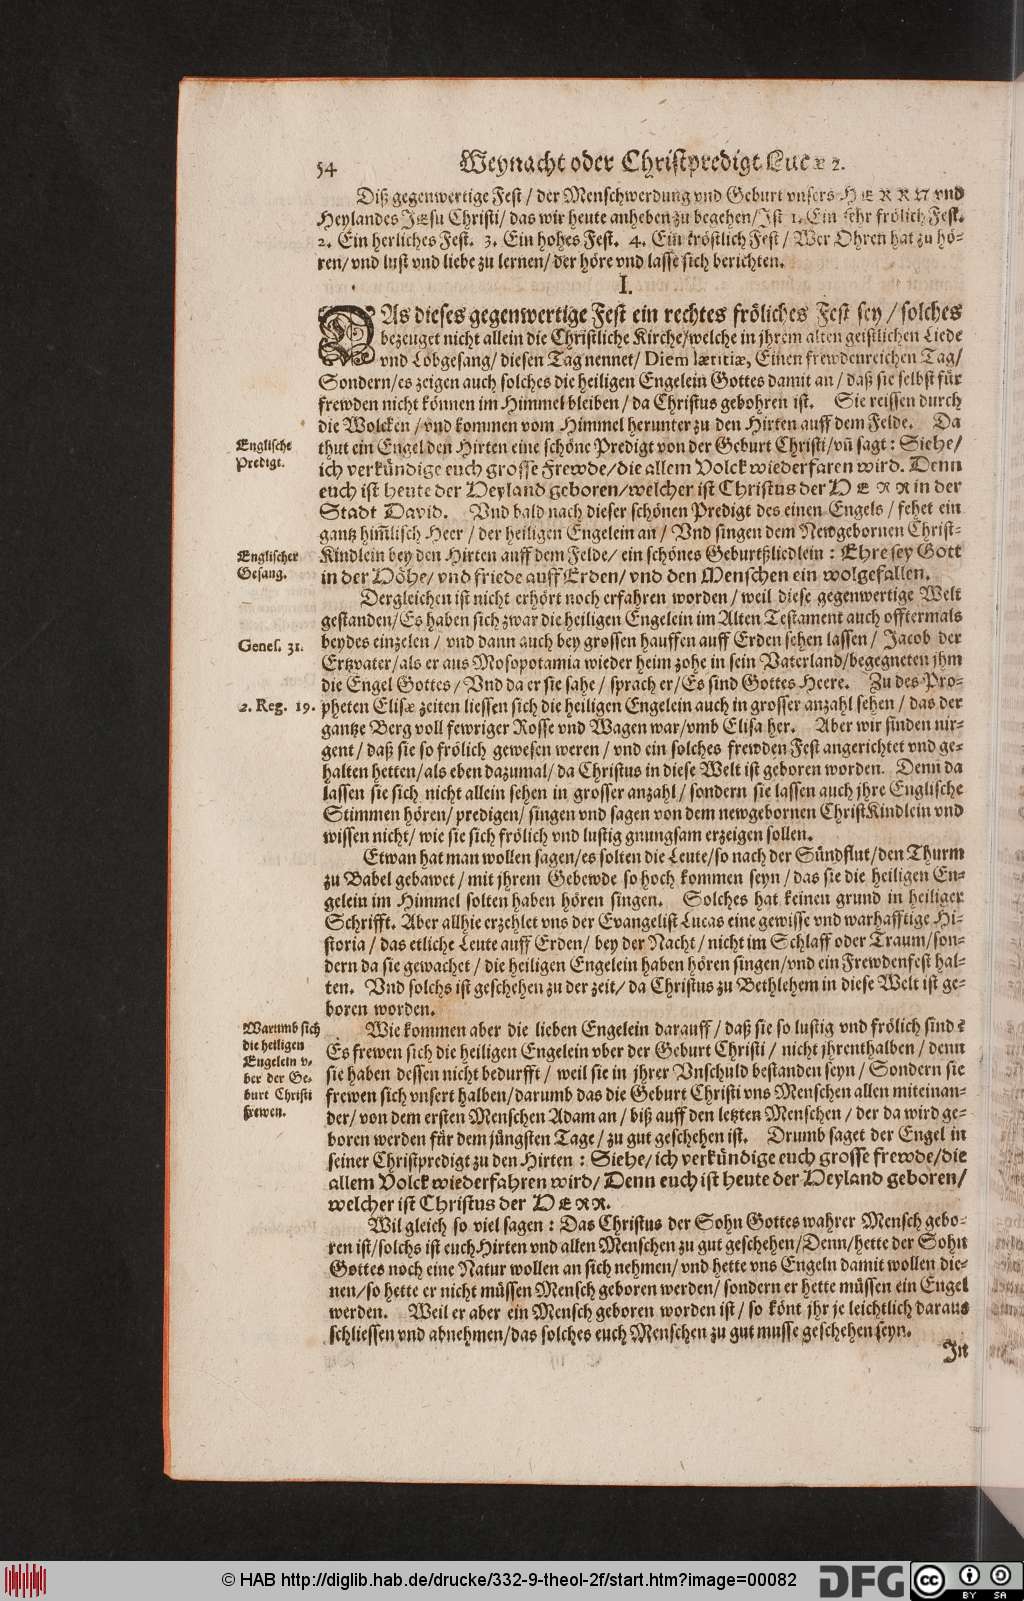 54 Weynacht oder Christpredigt Lucæ 2.
Diß gegenwertige Fest / der Menschwerdung vnd Geburt vnsers HERRN vnd
Heylandes JEsu Christi / das wir heute anheben zu begehen / Ist 1. Ein sehr frölich Fest.
2. Ein herliches Fest. 3. Ein hohes Fest. 4. Ein tröstlich Fest / Wer Ohren hat zu hö-
ren / vnd lust vnd liebe zu lernen / der höre vnd lasse sich berichten.
I.
DAs dieses gegenwertige Fest ein rechtes fröliches Fest sey / solches
bezeuget nicht allein die Christliche Kirche / welche in jhrem alten geistlichen Liede
vnd Lobgesang / diesen Tag nennet / Diem lætitiæ, Einen frewdenreichen Tag /
Sondern / es zeigen auch solches die heiligen Engelein Gottes damit an / daß sie selbst für
frewden nicht können im Himmel bleiben / da Christus gebohren ist. Sie reissen durch
die Wolcken / vnd kommen vom Himmel herunter zu den Hirten auff dem Felde. Da
Englische
Predigt.
thut ein Engel den Hirten eine schöne Predigt von der Geburt Christi / vñ sagt : Siehe /
ich verkündige euch grosse Frewde / die allem Volck wiederfaren wird. Denn
euch ist heute der Heyland geboren / welcher ist Christus der HERR in der
Stadt David. Vnd bald nach dieser schönen Predigt des einen Engels / fehet ein
gantz him̃lisch Heer / der heiligen Engelein an / Vnd singen dem Newgebornen Christ-
Englischer
Gesang.
Kindlein bey den Hirten auff dem Felde / ein schönes Geburtßliedlein : Ehre sey Gott
in der Höhe / vnd friede auff Erden / vnd den Menschen ein wolgefallen.
Dergleichen ist nicht erhört noch erfahren worden / weil diese gegenwertige Welt
gestanden / Es haben sich zwar die heiligen Engelein im Alten Testament auch offtermals
Genes. 31.
beydes einzelen / vnd dann auch bey grossen hauffen auff Erden sehen lassen / Jacob der
Ertzvater / als er aus Mosopotamia wieder heim zohe in sein Vaterland / begegneten jhm
die Engel Gottes / Vnd da er sie sahe / sprach er / Es sind Gottes Heere. Zu des Pro-
2. Reg. 19.
pheten Elisæ zeiten liessen sich die heiligen Engelein auch in grosser anzahl sehen / das der
gantze Berg voll fewriger Rosse vnd Wagen war / vmb Elisa her. Aber wir finden nir-
gent / daß sie so frölich gewesen weren / vnd ein solches frewden Fest angerichtet vnd ge-
halten hetten / als eben dazumal / da Christus in diese Welt ist geboren worden. Denn da
lassen sie sich nicht allein sehen in grosser anzahl / sondern sie lassen auch jhre Englische
Stimmen hören / predigen / singen vnd sagen von dem newgebornen ChristKindlein vnd
wissen nicht / wie sie sich frölich vnd lustig gnungsam erzeigen sollen.
Etwan hat man wollen sagen / es solten die Leute / so nach der Sündflut / den Thurm
zu Babel gebawet / mit jhrem Gebewde so hoch kommen seyn / das sie die heiligen En-
gelein im Himmel solten haben hören singen. Solches hat keinen grund in heiliger
Schrifft. Aber allhie erzehlet vns der Evangelist Lucas eine gewisse vnd warhafftige Hi-
storia / das etliche Leute auff Erden / bey der Nacht / nicht im Schlaff oder Traum / son-
dern da sie gewachet / die heiligen Engelein haben hören singen / vnd ein Frewdenfest hal-
ten. Vnd solchs ist geschehen zu der zeit / da Christus zu Bethlehem in diese Welt ist ge-
boren worden.
Warumb sich
die heiligen
Engelein v-
ber der Ge-
burt Christi
frewen.
Wie kommen aber die lieben Engelein darauff / daß sie so lustig vnd frölich sind ?
Es frewen sich die heiligen Engelein vber der Geburt Christi / nicht jhrenthalben / denn
sie haben dessen nicht bedurfft / weil sie in jhrer Vnschuld bestanden seyn / Sondern sie
frewen sich vnsert halben / darumb das die Geburt Christi vns Menschen allen miteinan-
der / von dem ersten Menschen Adam an / biß auff den letzten Menschen / der da wird ge-
boren werden für dem jüngsten Tage / zu gut geschehen ist. Drumb saget der Engel in
seiner Christpredigt zu den Hirten : Siehe / ich verkündige euch grosse frewde / die
allem Volck wiederfahren wird / Denn euch ist heute der Heyland geboren /
welcher ist Christus der HERR.
Wil gleich so viel sagen : Das Christus der Sohn Gottes wahrer Mensch gebo-
ren ist / solchs ist euch Hirten vnd allen Menschen zu gut geschehen / Denn / hette der Sohn
Gottes noch eine Natur wollen an sich nehmen / vnd hette vns Engeln damit wollen die-
nen / so hette er nicht müssen Mensch geboren werden / sondern er hette müssen ein Engel
werden. Weil er aber ein Mensch geboren worden ist / so könt jhr je leichtlich daraus
schliessen vnd abnehmen / das solches euch Menschen zu gut musse geschehen seyn.
In
© HAB http://diglib.hab.de/drucke/332-9-theol-2f/start.htm?image=00082
DFG
cc BY SA